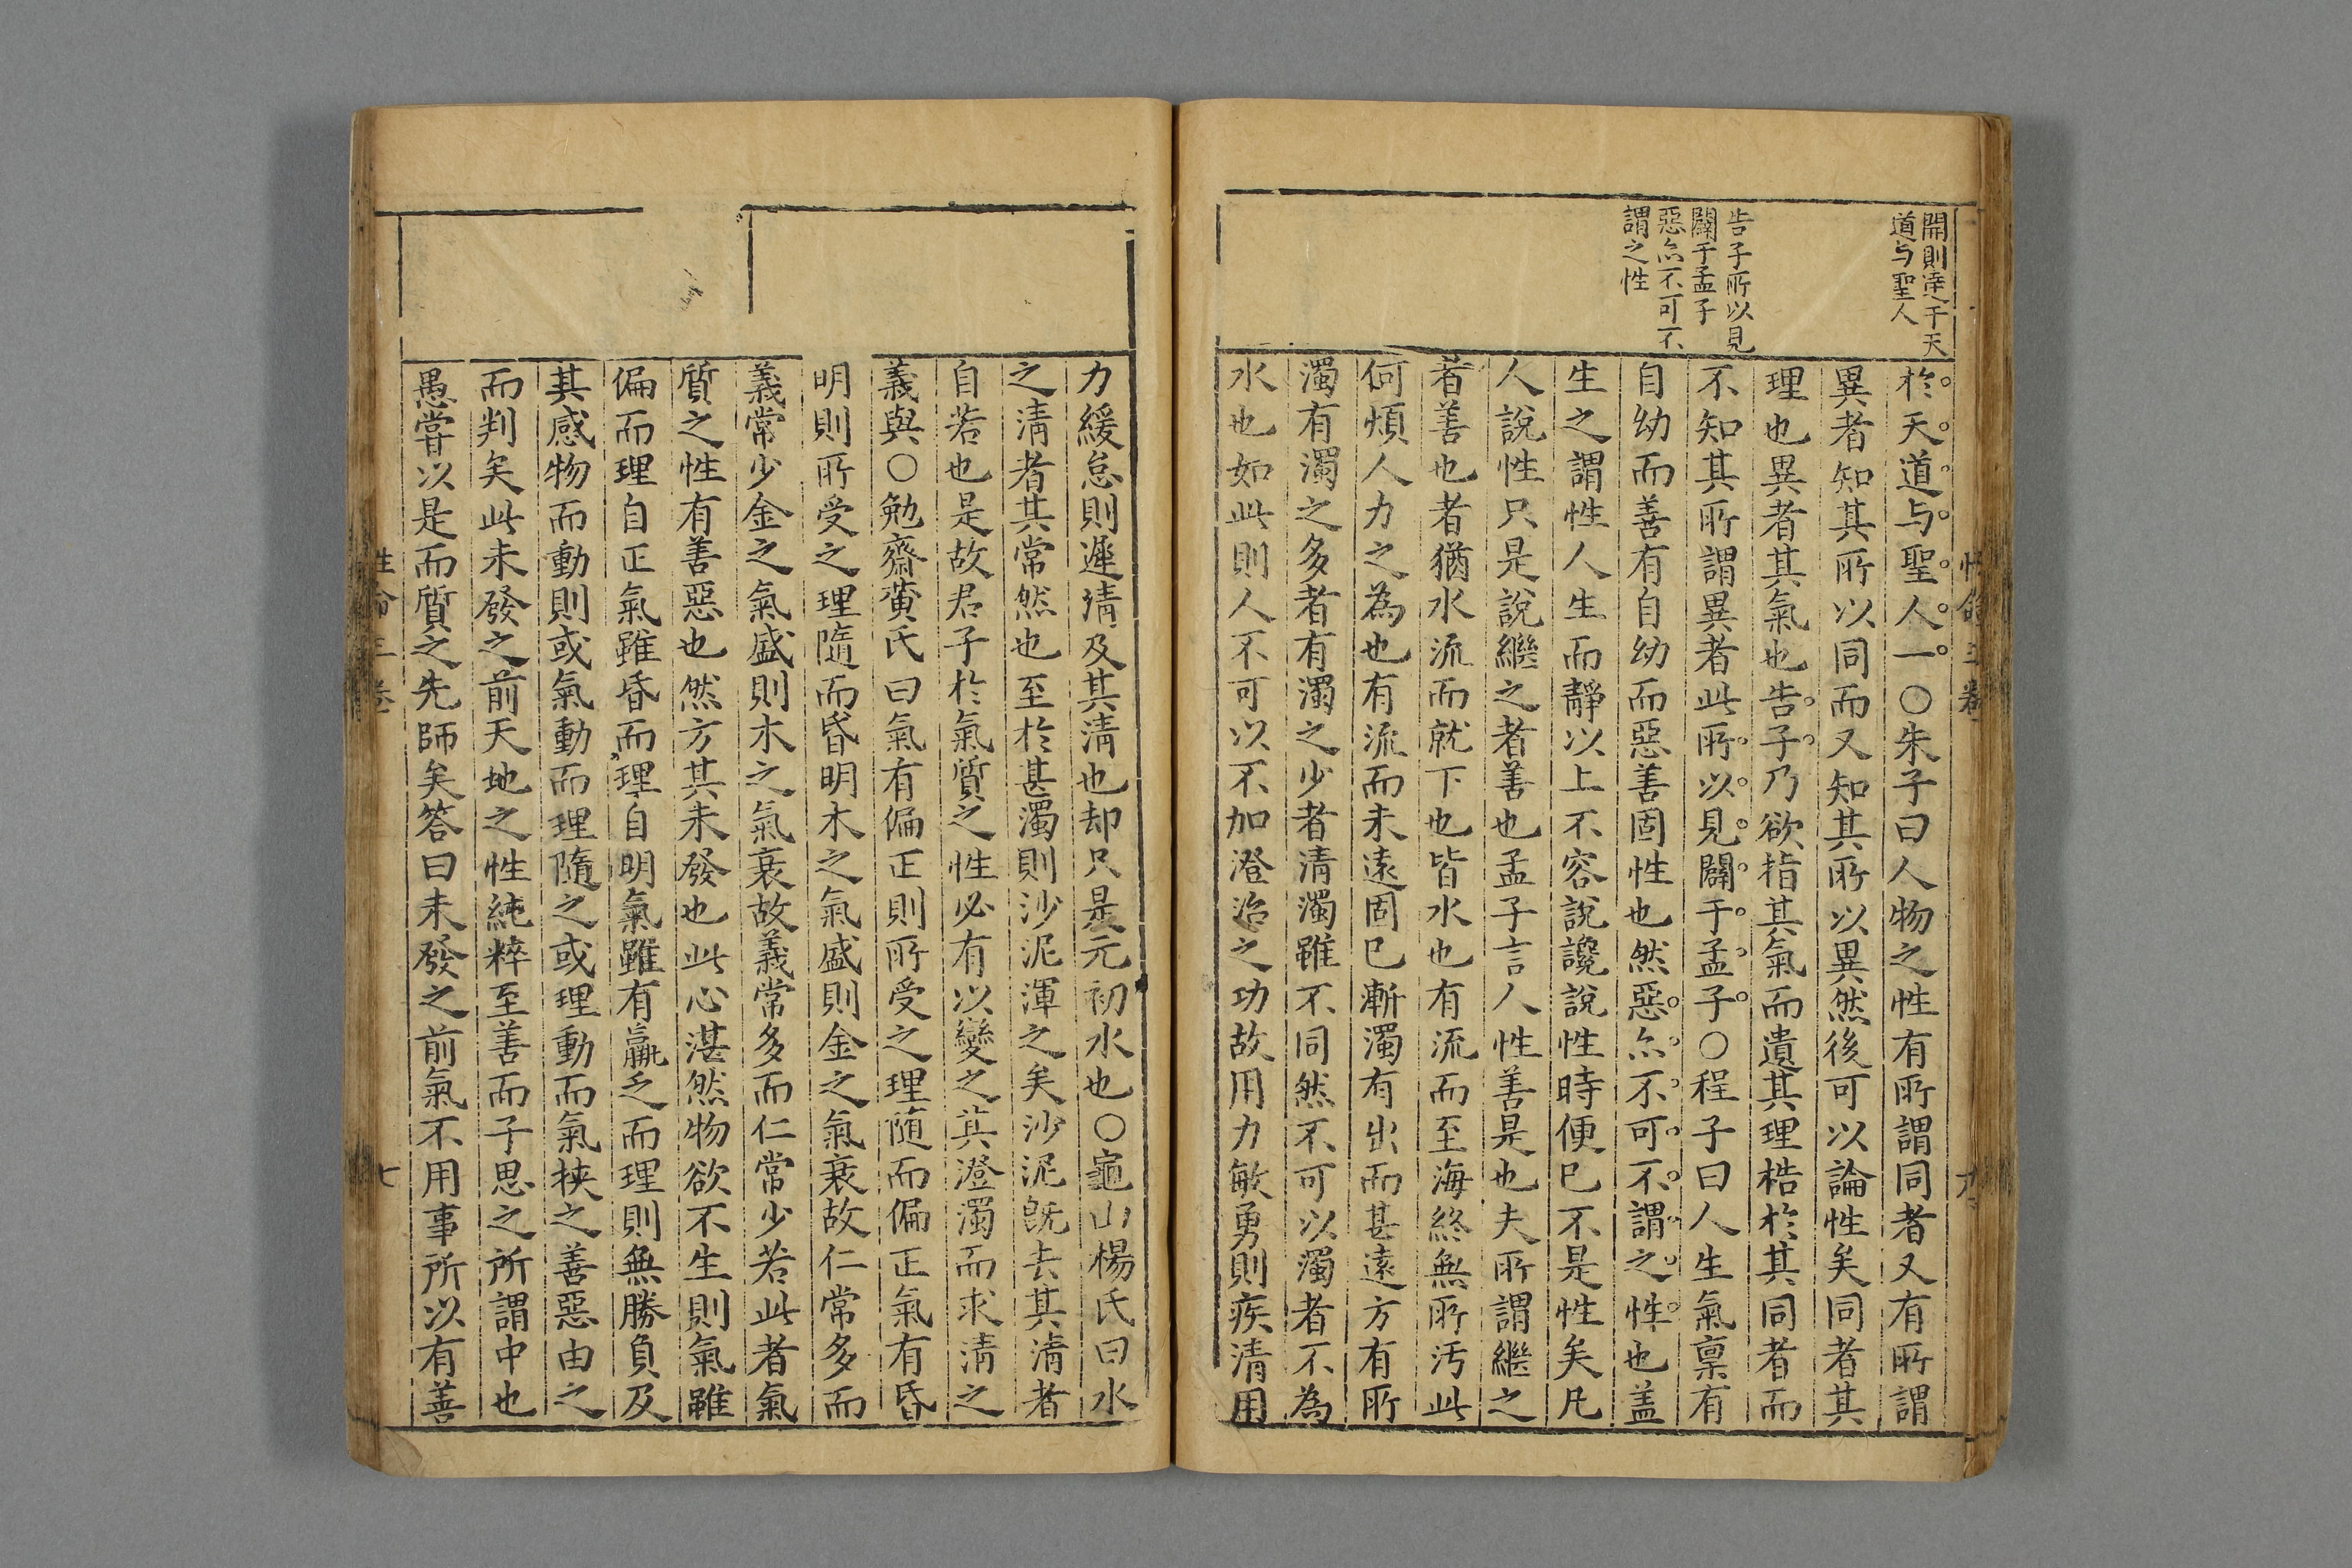 開則達于天
道与聖人
告子所以見
闢于孟子
惡亦不可不
謂之性
於天道与聖人一○朱子曰人物之性有所謂同者又有所謂
異者知其所以同而又知其所以異然後可以論性矣同者其
理也異者其氣也告子乃欲指其氣而遺其理梏於其同者而
不知其所謂異者此所以見闢于孟子○程子曰人生氣禀有
自幼而善有自幼而惡善固性也然惡亦不可不謂之性也盖
生之謂性人生而靜以上不容說讒說性時便已不是性矣凡
人說性只是說繼之者善也孟子言人性善是也夫所謂繼之
者善也者猶水流而就下也皆水也有流而至海終無所汚此
何煩人力之為也有流而未遠固已漸濁有出而甚遠方有所
濁有濁之多者有濁之少者清濁雖不同然不可以濁者不為
水也如此則人不可以不加澄治之功故用力敏勇則疾清用
力緩怠則遲清及其清也却只是元初水也○龜山楊氏曰水
之清者其常然也至於甚濁則沙泥渾之矣沙泥旣去其清者
自若也是故君子於氣質之性必有以變之其澄濁而求清之
義與○勉齋黄氏曰氣有偏正則所受之理随而偏正氣有昏
明則所受之理隨而昏明木之氣盛則金之氣衰故仁常多而
義常少金之氣盛則木之氣衰故義常多而仁常少若此者氣
質之性有善惡也然方其未發也此心湛然物欲不生則氣雖
偏而理自正氣雖昏而理自明氣雖有羸乏而理則無勝負及
其感物而動則或氣動而理隨之或理動而氣挟之善惡由之
而判矣此未發之前天地之性純粹至善而子思之所謂中也
愚嘗以是而質之先師矣答曰未發之前氣不用事所以有善
性命三卷
七